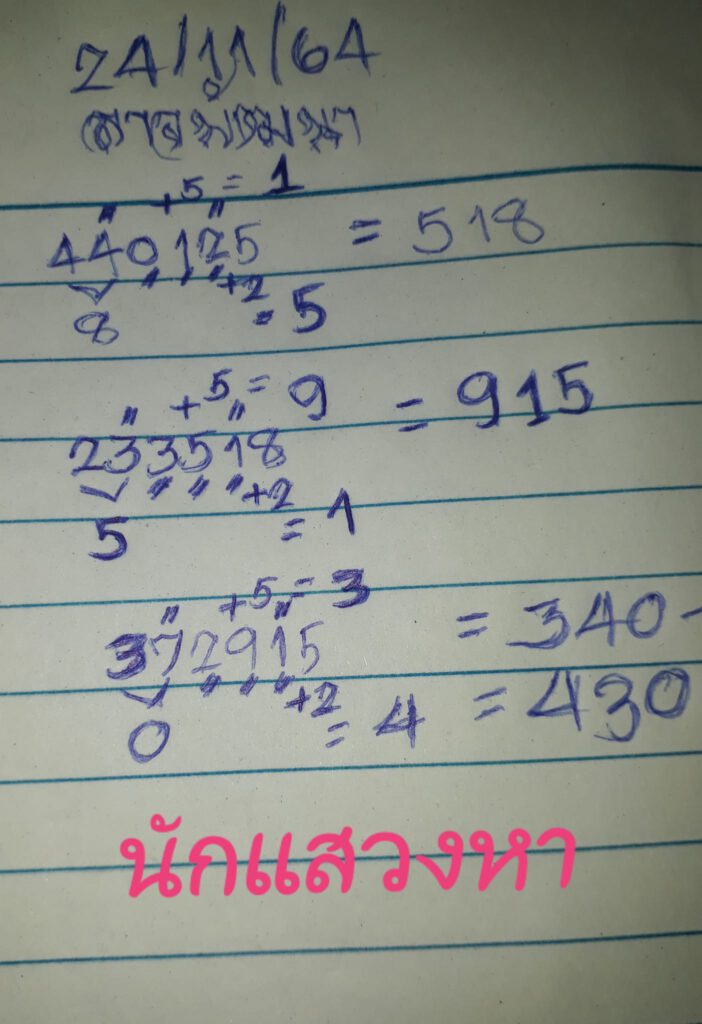 24/11/64
+5 = 1
440125 = 518
+2
8 = 5
+5 = 9
233518 = 915
+2
5 = 1
+5 = 3
372915 = 340-
+2
0 = 4 = 430
นักแสวงหา